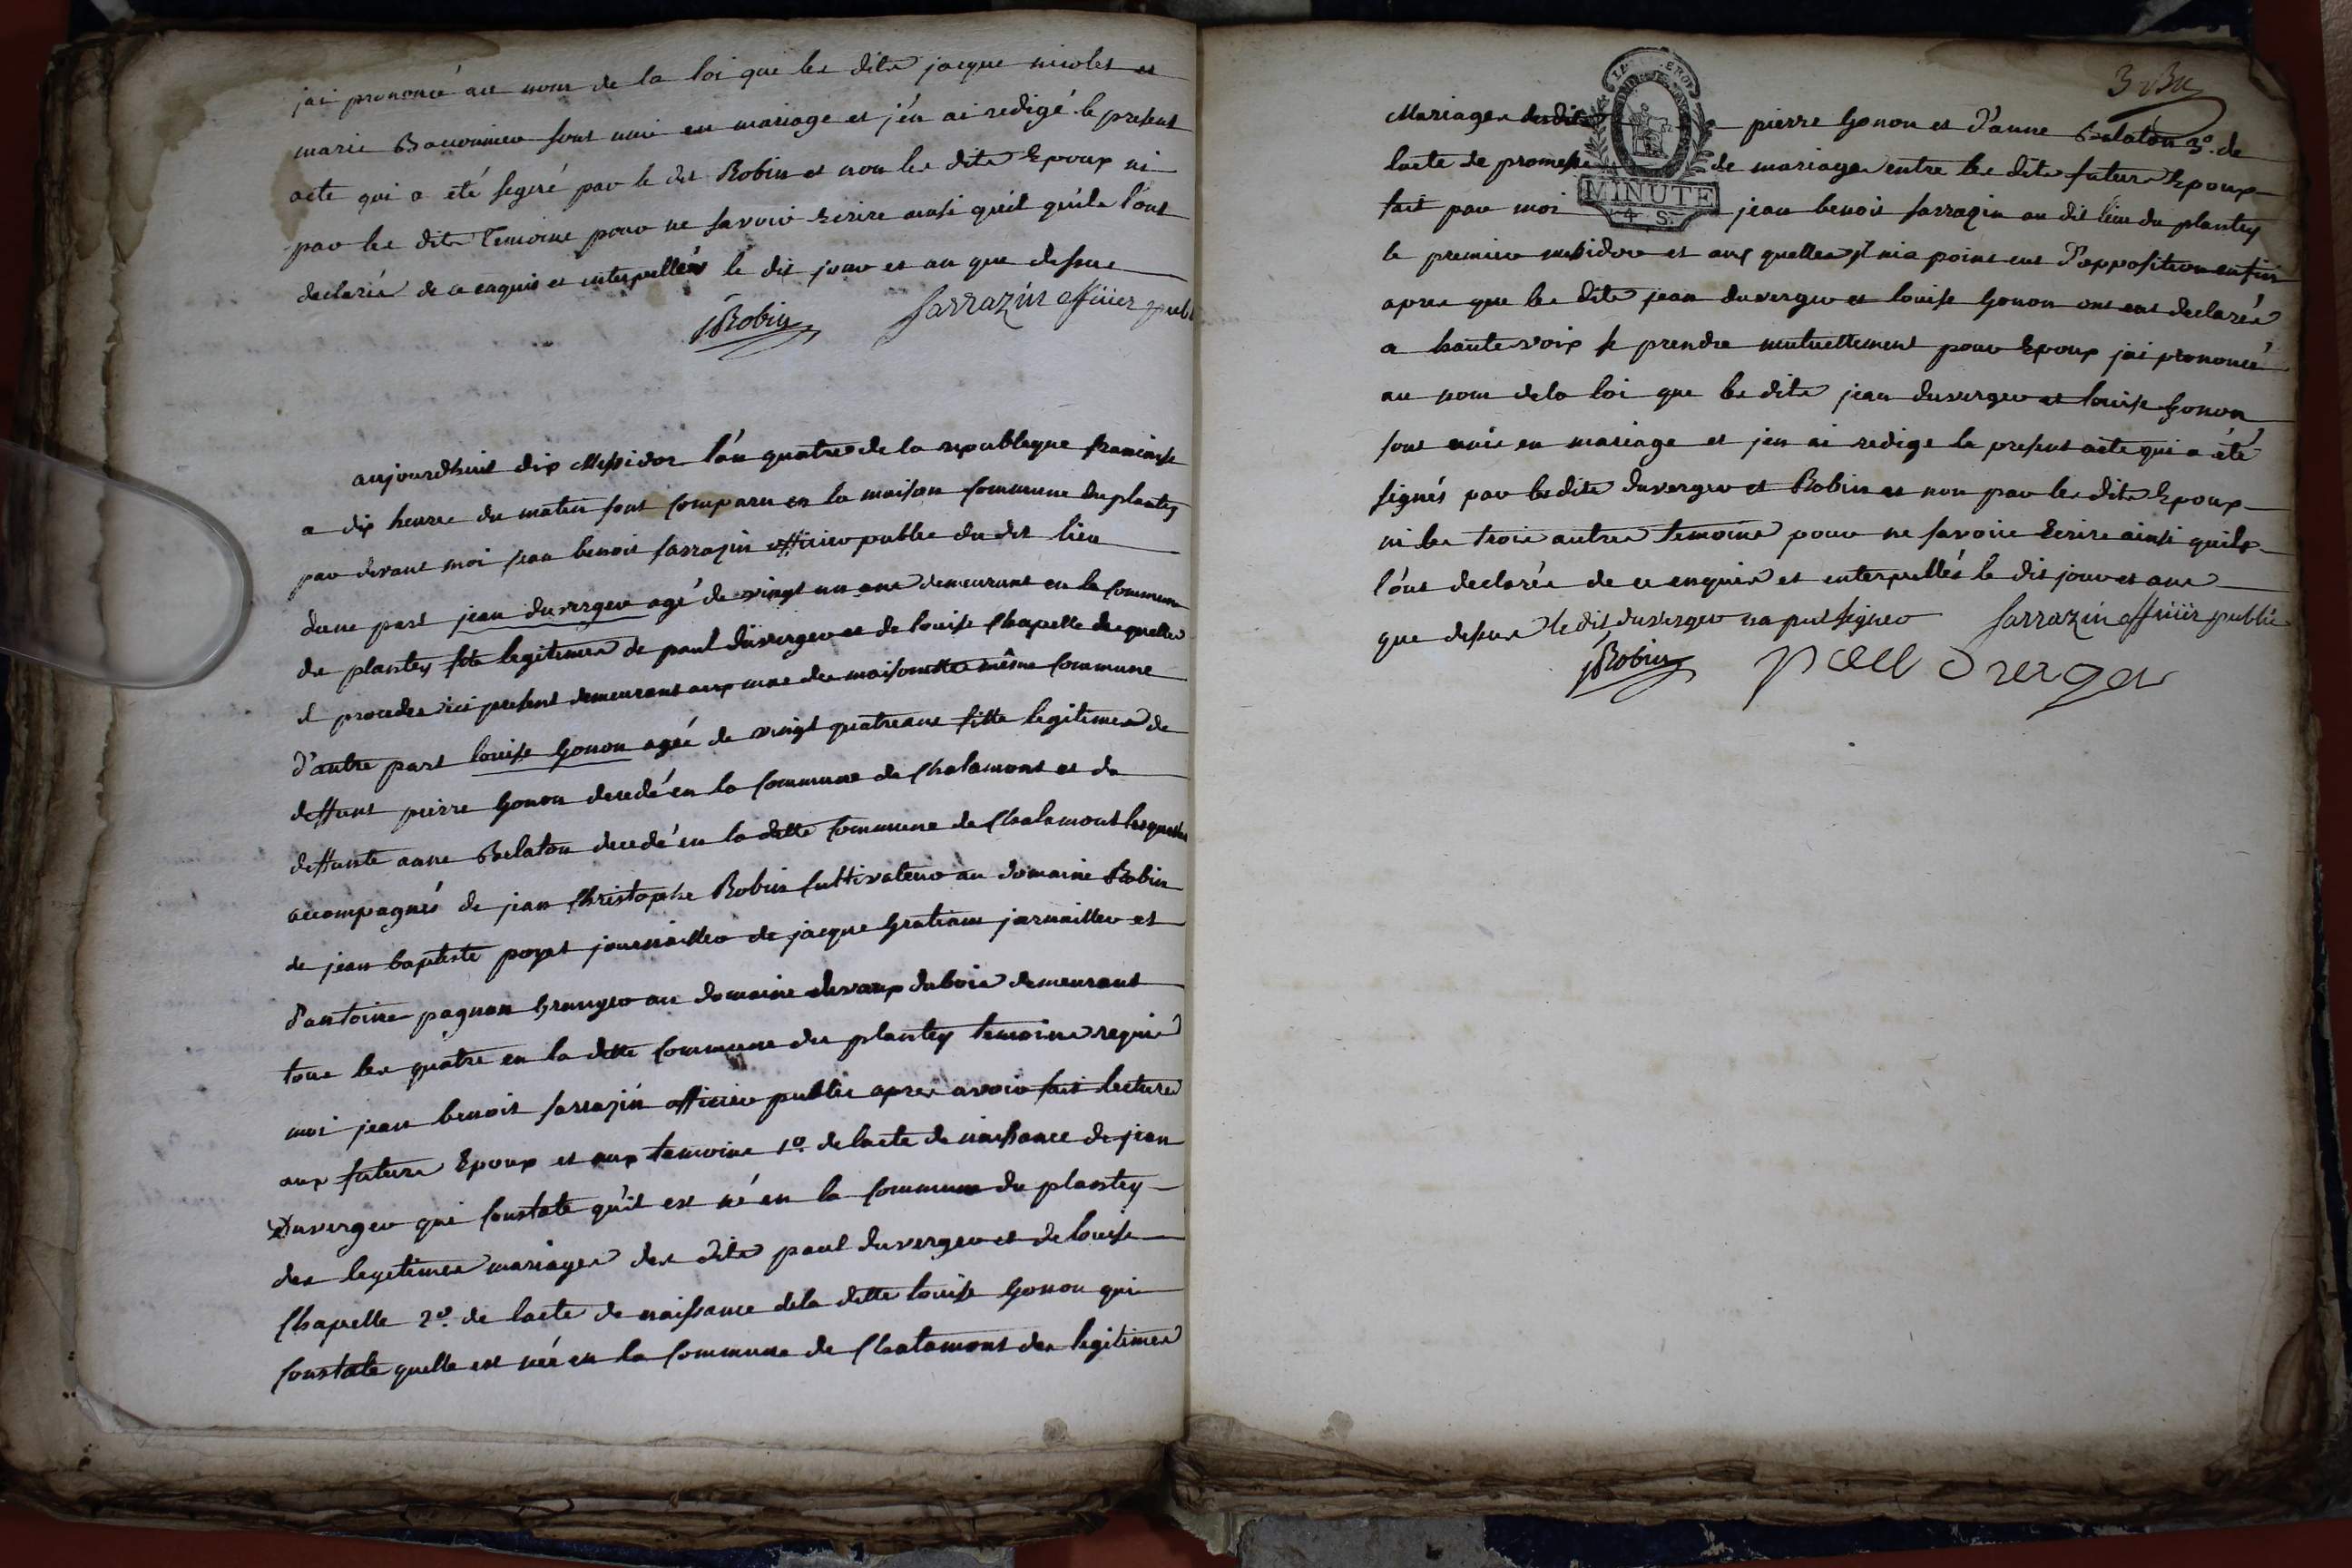 jai prononcé au nom de la loi que les dits jacque nicolet et
marie Bauonnier sont unie en mariage et j'en ai redigé le present
acte qui a eté signé par le dit Robin et non les dits Epoux ni
par les dits Temoins pour ne savoir Ecrire ainsi quil quils l'ont
declarés de ce enquis et interpellés le dit jour et an que dessus
JRobin
Sarrazin officier publ
aujourdhuit dix Messidor l'an quatre de la republique francaise
a dix heures du matin sont Comparu en la maison Commune du plantey
par devant moi jean benoit Sarrazin officier public du dit lieu
dune part jean duverger agé de vingt un ans demeurant en la Commune
du plantey fils legitimes de paul duverger et de louise Chapelle
procedes ici present demeurant aux mas des maisonette même Commune
d'autre part louise Gonon agée de vingt quatre ans fille legitimes de
deffunt pierre Gonon decedé en la Commune de Chalamont et de
deffunte anne Belaton decedé en la dette Commune de Chalamont lesquelles
accompagnés de jean Christophe Robin Cultivateur au domaine Robin
de jean baptiste poyet journaillier de jacque Gratiam jurnaillier et
d'antoine pagnon Granger au domaine devaux dubois demeurant
tous les quatre en la dette Commune du plantey temoins requis
moi jean benoit Sarrazin officier public apres avoir fait lectures
aux futurs Epoux et aux temoins 1o. de lacte de naissance de jean
Duverger qui Constate qu'il est né en la Commune du plantey
des legetimes mariages des dits paul duverger et de louise
Chapelle 2o. de lacte de naissance dela dette louise Gonon qui
Constate quelle est née en la Commune de Chalamont des legitimes
Mariages desdits pierre Gonon et d'anne Belaton 3o. de
lacte de promesse de mariages entre les dits futurs Epoux
MINUTE
4 S.
fait par moi jean benoit Sarrazin au dit lieu du plantey
le premier messidor et aux quelles il nia point eut d'opposition enfin
apres que les dits jean duverger et louise Gonon ont eut declarés
a haute voix se prendre mutuellement pour Epoux jai prononcé
au nom dela loi que les dits jean duverger et louise Gonon
sont unie en mariage et jen ai redige le present acte qui a été
signés par les dits duverger et Robin et non par les dits Epoux
ni les trois autres temoins pour ne savoir Ecrire ainsi quils
l'ont declarés de ce enquis et interpellés le dit jour et an
que dessus le dit duverger na put signer
Sarrazin officier public
JRobin